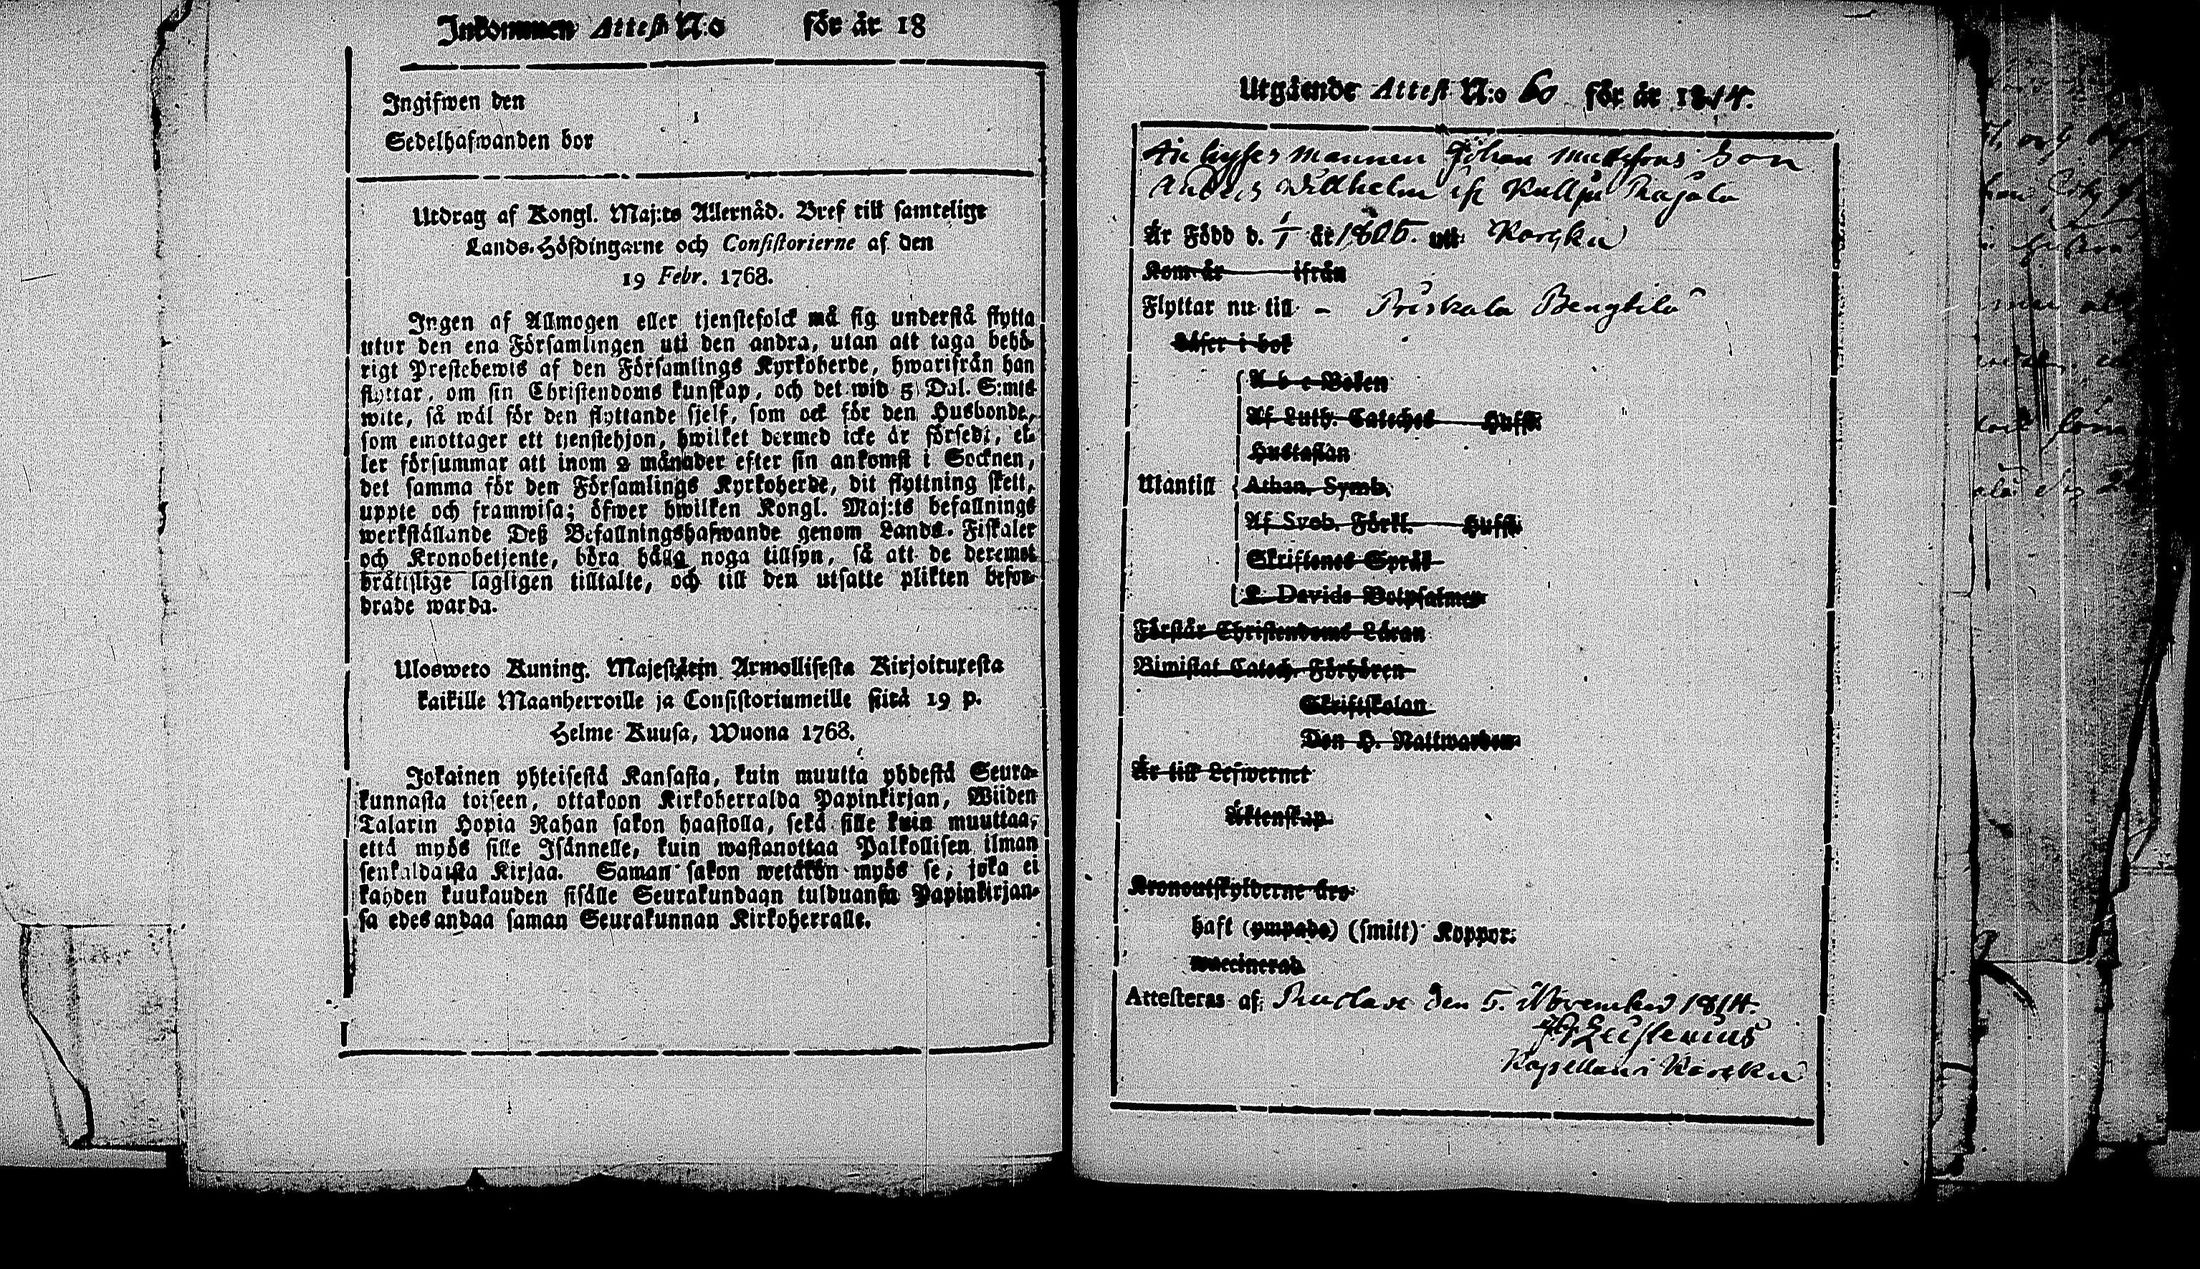 Inkommen Attest N:o för år 18
Ingifwen den
Sedelhafwanden bor
Utdrag af Kongl. Maj:ts Allernåd. Bref till samtelige
Lands-Höfdingarne och Consistorierne af den
19 Febr. 1768.
Ingen af Allmogen eller tjenstefolck må sig understå flytta
utur den ena Församlingen uti den andra, utan att taga behö-
rigt Prestebewis af den Församlings Kyrkoherde, hwarifrån han
flyttar, om sin Christendoms kunskap, och det wid 5 Dal. S:mts
wite, så wäl för den flyttande sjelf, som ock för den Husbonde,
som emottager ett tjenstehjon, hwilket dermed icke är försedt, el-
ler försummar att inom 2 månader efter sin ankomst i Socknen,
det samma för den Församlings Kyrkoherde, dit flyttning skett,
uppte och framwisa; öfwer hwilken Kongl. Maj:ts befallnings
werkställande Deß Befallningshafwande genom Lands-Fiskaler
och Kronobetjente, böra hålla noga tillsyn, så att de deremot
bråtislige lagligen tilltalte, och till den utsatte plikten befor-
drade warda.
Ulosweto Kuning. Majestätin Armollisesta Kirjoituxesta
kaikille Maanherroille ja Consistoriumeille siitä 19 p.
Helme-Kuusa, Wuona 1768.
Jokainen yhteisestä Kansasta, kuin muutta yhdestä Seura-
kunnasta toiseen, ottakoon Kirkoherralda Papinkirjan, Wiiden
Talarin Hopia Rahan sakon haastolla, sekä sille kuin muuttaa,
että myös sille Isännelle, kuin wastanottaa Palkollisen ilman
senkaldaista Kirjaa. Saman sakon wetäkön myös se, joka ei
kahden kuukauden sisälle Seurakundaan tulduansa Papinkirjan-
sa edesandaa saman Seurakunnan Kirkoherralle.
Utgående Attest N:o 60 för år 1814.
mannen Johan Mattssons Son
Anders Willhelm
År Född d. 1/1 år 1805. uti Karsku
Kom år ifrån
Flyttar nu till - Priskala Bengtilä
Läser i bok
A b c Boken
Af Luth. Catechet Hufst.
Hustaflan
Utantill Athan. Symb.
Af Sveb. Förkl. Hufst.
Skriftenes Språk
K. Davids Botpsalmer
Förstår Christendoms Läran
Bimistat Catech. Förhören
Skriftskolan
Den H. Nattwarden
Är till Lefwernet
Äktenskap
Kronoutskylderne äro
haft (ympade) (smitt) Koppor.
waccinerad
Attesteras af; den 5. November 1814.
Karsku